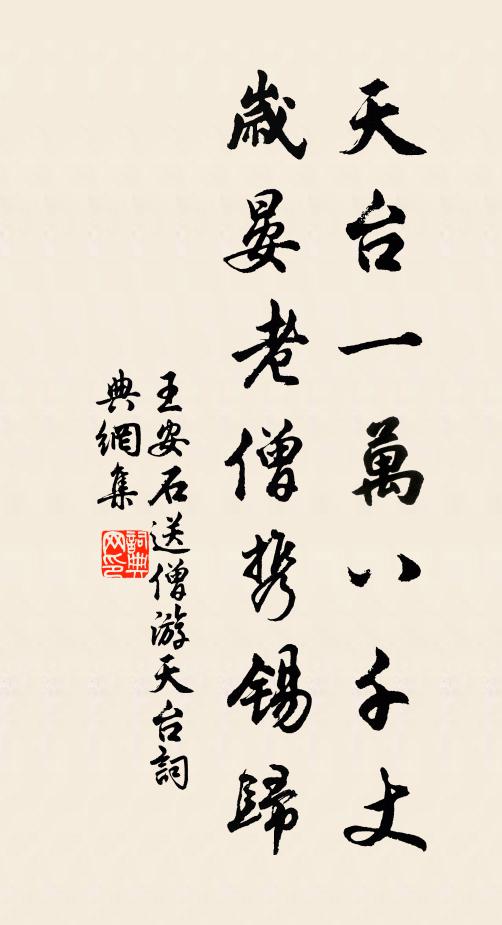 天台一萬八千丈
歲晏老僧携錫歸
王安石送僧游天台詞
典網集
詞典網印